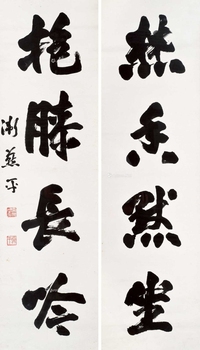 焚香默坐
抱膝長吟
漸葊平